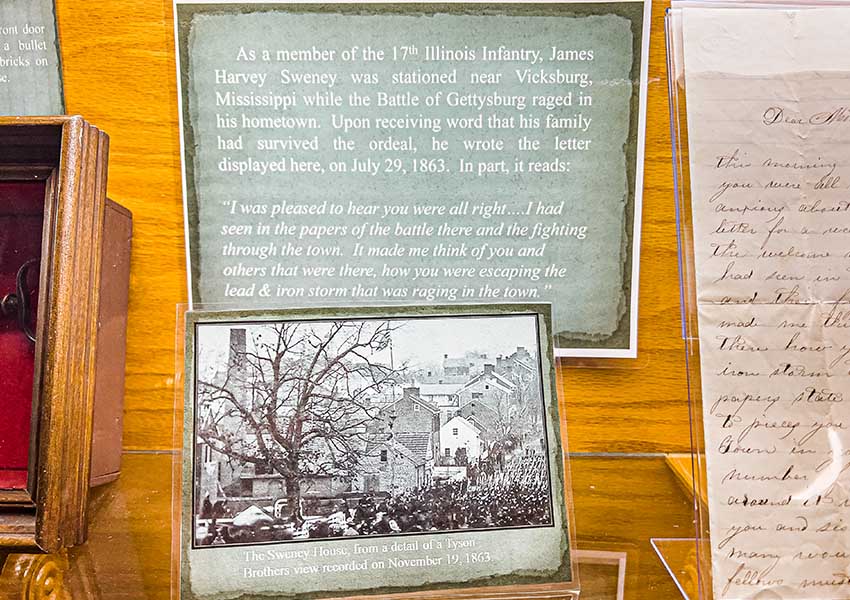 ront door
a bullet
bricks on
se.
As a member of the 17th Illinois Infantry, James
Harvey Sweney was stationed near Vicksburg,
Mississippi while the Battle of Gettysburg raged in
his hometown. Upon receiving word that his family
had survived the ordeal, he wrote the letter
displayed here, on July 29, 1863. In part, it reads:
“I was pleased to hear you were all right....I had
seen in the papers of the battle there and the fighting
through the town. It made me think of you and
others that were there, how you were escaping the
lead & iron storm that was raging in the town.”
The Sweney House, from a detail of a Tyson
Brothers view recorded on November 19, 1863.
Dear
this morning
you were all
anxious about
letter for a
the welcome
had seen in
and the
made me thi
there how y
iron storm
papers state
to pieces you
down in
number
around
you and sis
many wou
fellows mus